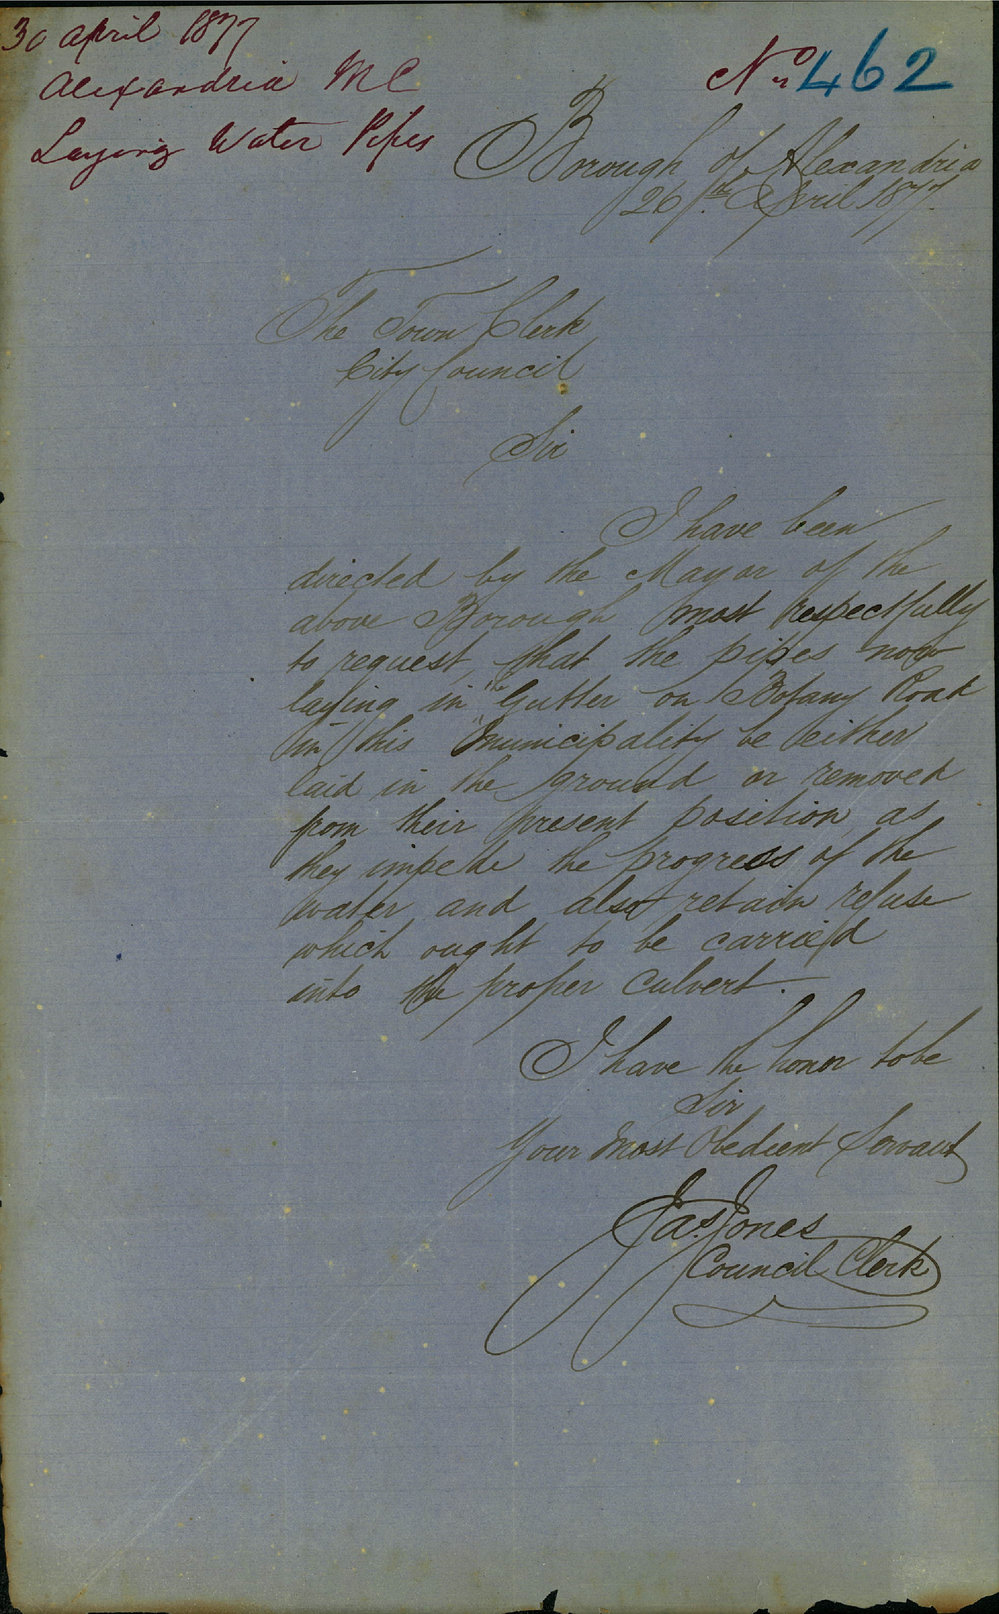 30 April 1877
Alexandria M C
Laying Water Pipes
No 462
Borough of Alexandria
26th April 1877.
The Town Clerk
City Council
Sir
I have been
directed by the Mayor of the
above Borough most respectfully
to request, that the pipes now
laying in the Gutter on Botany Road
in this Municipality be either
laid in the ground or removed
from their present position, as
they impede the progress of the
water and also retain refuse
which ought to be carried
into the proper culvert.
I have the honor to be
Sir
Your Most Obedient Servant
Jas. Jones
Council Clerk